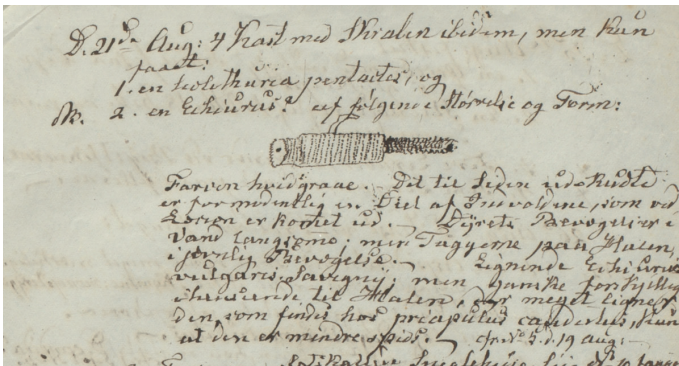 D. 21de Aug: 4 Kast med Skraben ibidem, men kun
faaet:
1. en holothuria pentactes, og
2. en Echiurus? af følgende Størrelse og Form:
Farven hvidgraae. Det til Siden udskudte
er formodentlig en Deel af Indvoldene, som ved
er kommet ud. Dyrets Bevægelser i
Vand langsomme, men Taggerne paa Halen
i jevnlig Bevægelse. Lignende Echiurus
vulgaris Savignii, men ganske forskjellig
henseende til Halen, der meget ligner
den, som findes hos priapulus caudatus, kun
at den er mindre spids. 5. 19 aug: